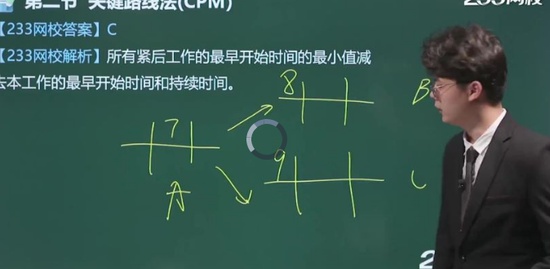 第二节 关键路线法(CPM)
233网校
【233网校答案】C
【233网校解析】所有紧后工作的最早开始时间的最小值减
去本工作的最早开始时间和持续时间。
8
B
7
9
A
C
2